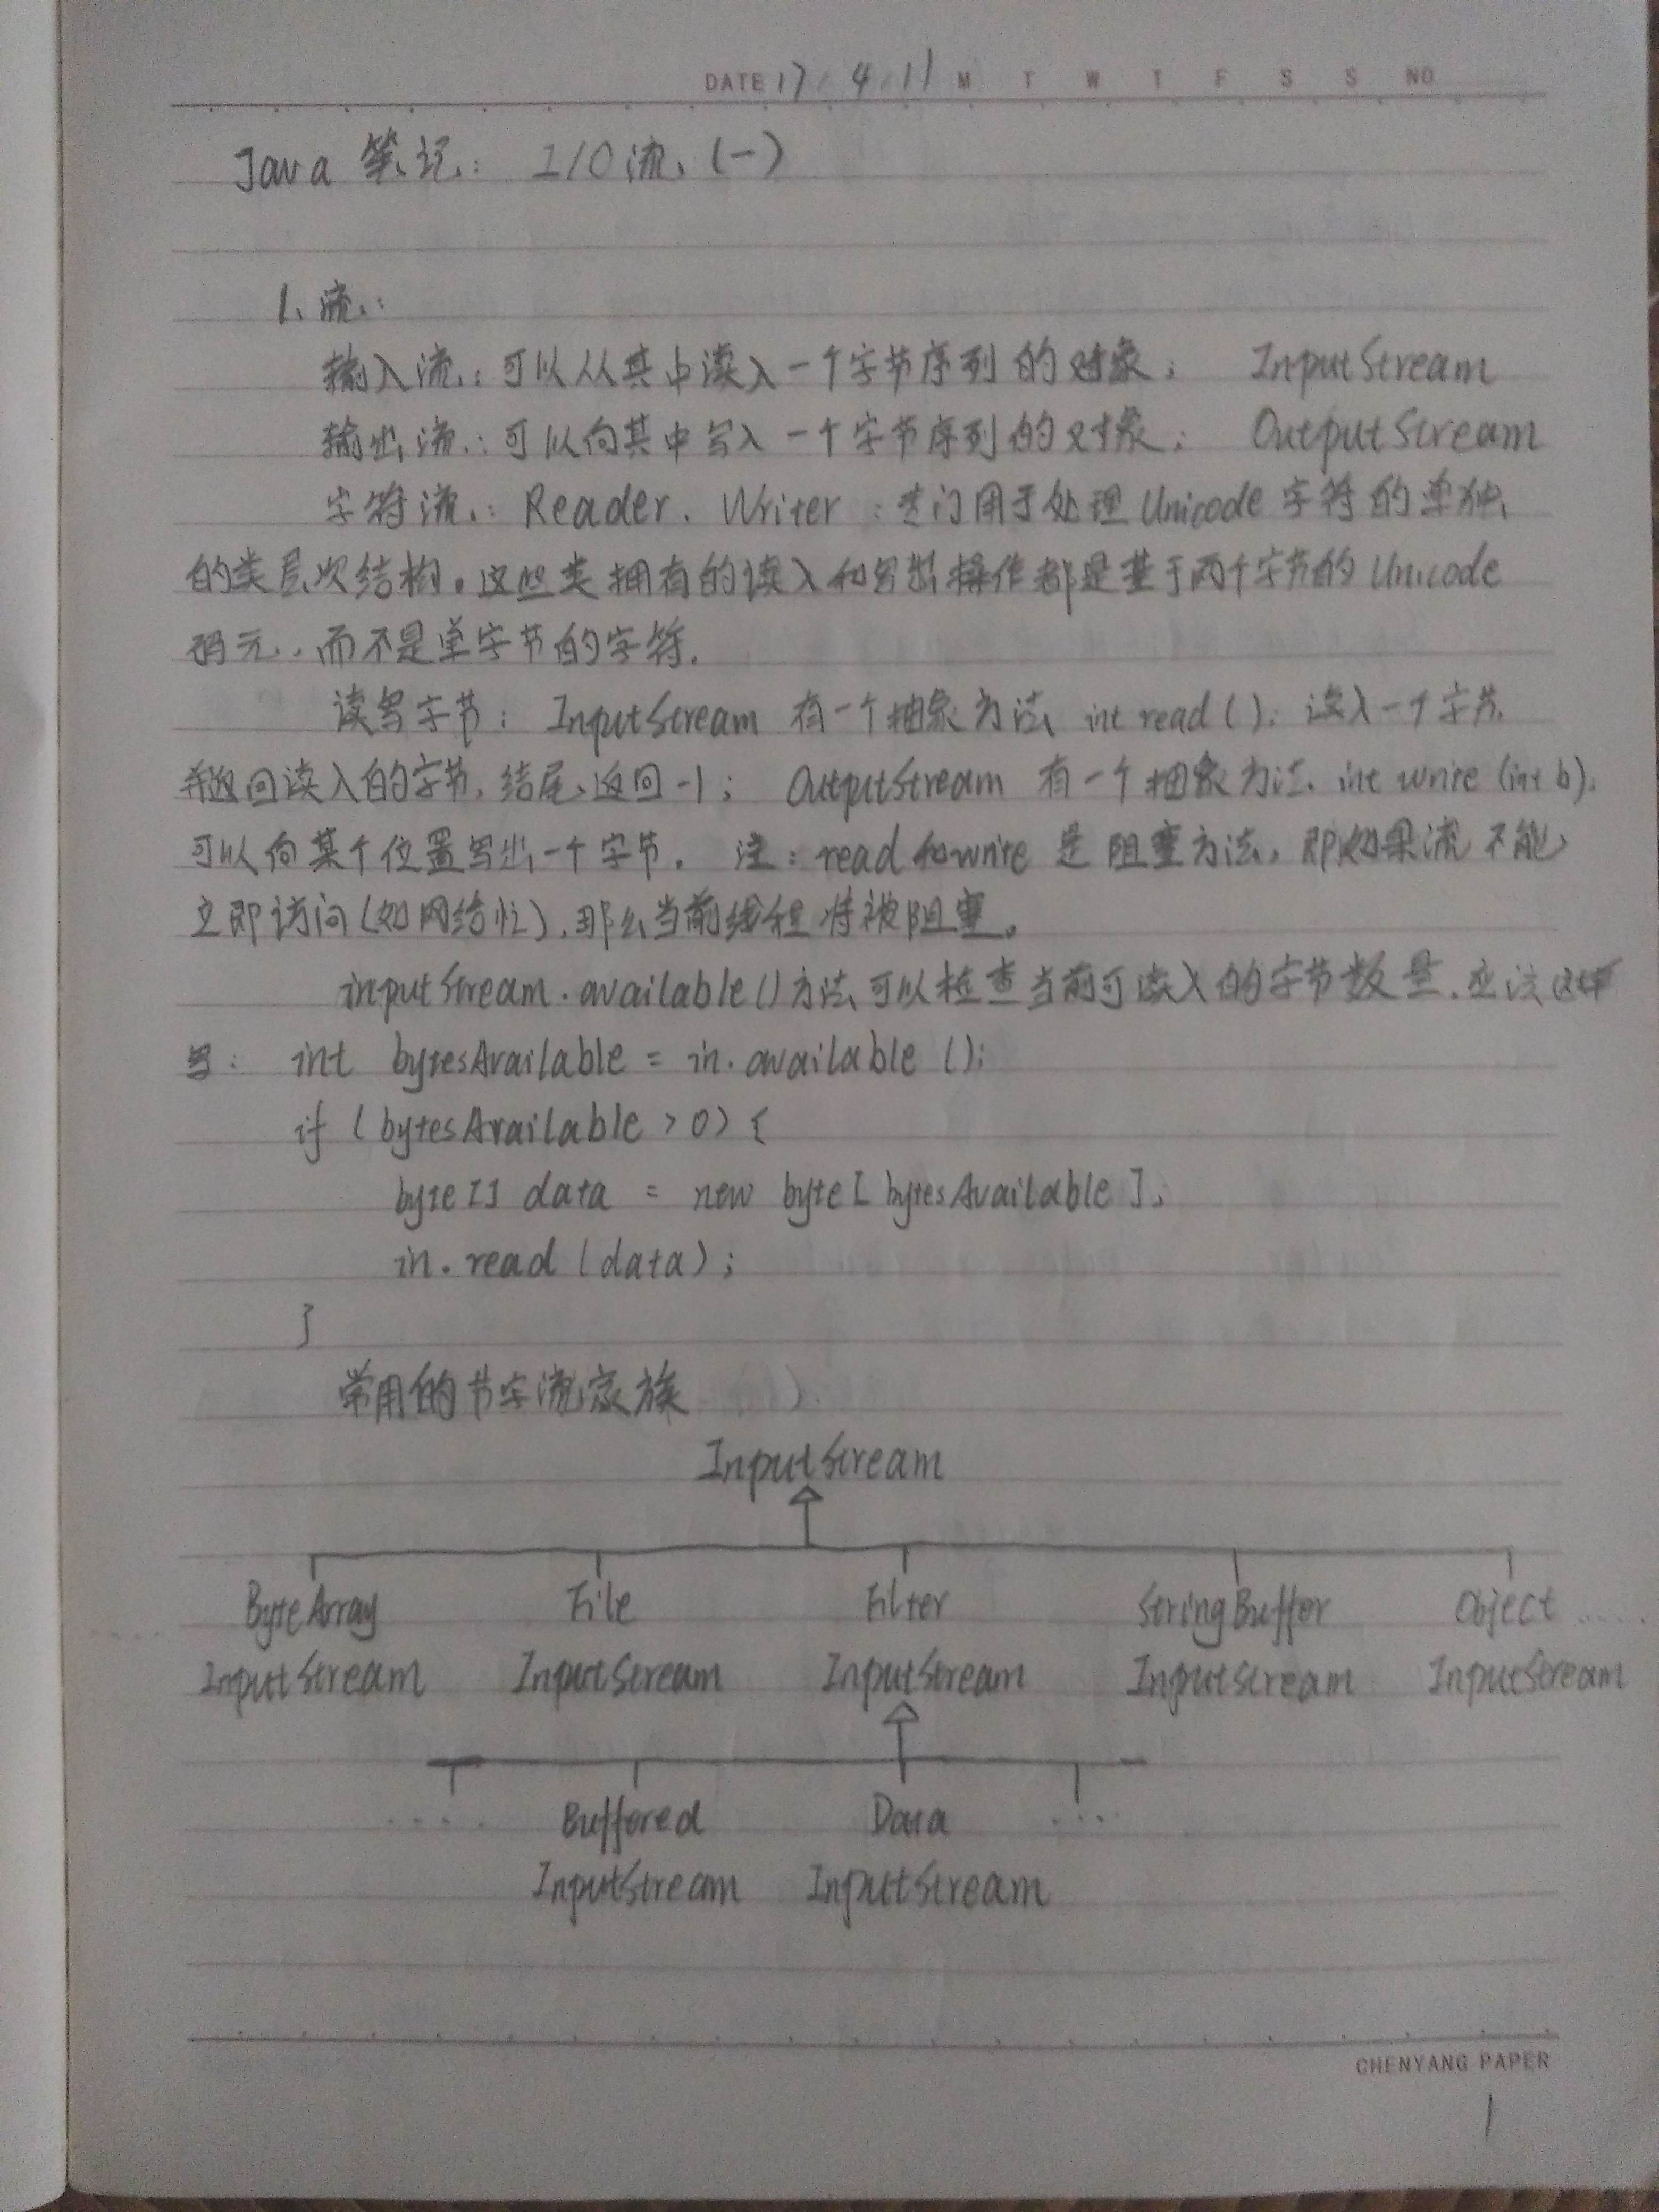 DATE 17 . 4 . 11 M T W T F S S NO
Java 笔记: I/O流 (一)
1、流:
输入流: 可以从其中读入一个字节序列的对象; InputStream
输出流: 可以向其中写入一个字节序列的对象; OutputStream
字符流: Reader、Writer : 专门用于处理 Unicode 字符的单独
的类层次结构。这些类拥有的读入和写出操作都是基于两个字节的 Unicode
码元, 而不是单字节的字符.
读写字节: InputStream 有一个抽象方法 int read(); 读入一个字节,
并返回读入的字节, 结尾返回-1; OutputStream 有一个抽象方法. int write (int b);
可以向某个位置写出一个字节. 注: read和write 是阻塞方法, 即如果流不能
立即访问(如网络忙), 那么当前线程将被阻塞。
inputStream.available()方法可以检查当前可读入的字节数量. 应该这样
写: int bytesAvailable = in.available ();
if (bytesAvailable > 0) {
byte[] data = new byte[ bytesAvailable ];
in.read (data);
}
常用的节字流家族
InputStream
ByteArray File Filter StringBuffer Object .....
..... InputStream InputStream InputStream InputStream InputStream
..... Buffered Data ....
InputStream InputStream
CHENYANG PAPER
1